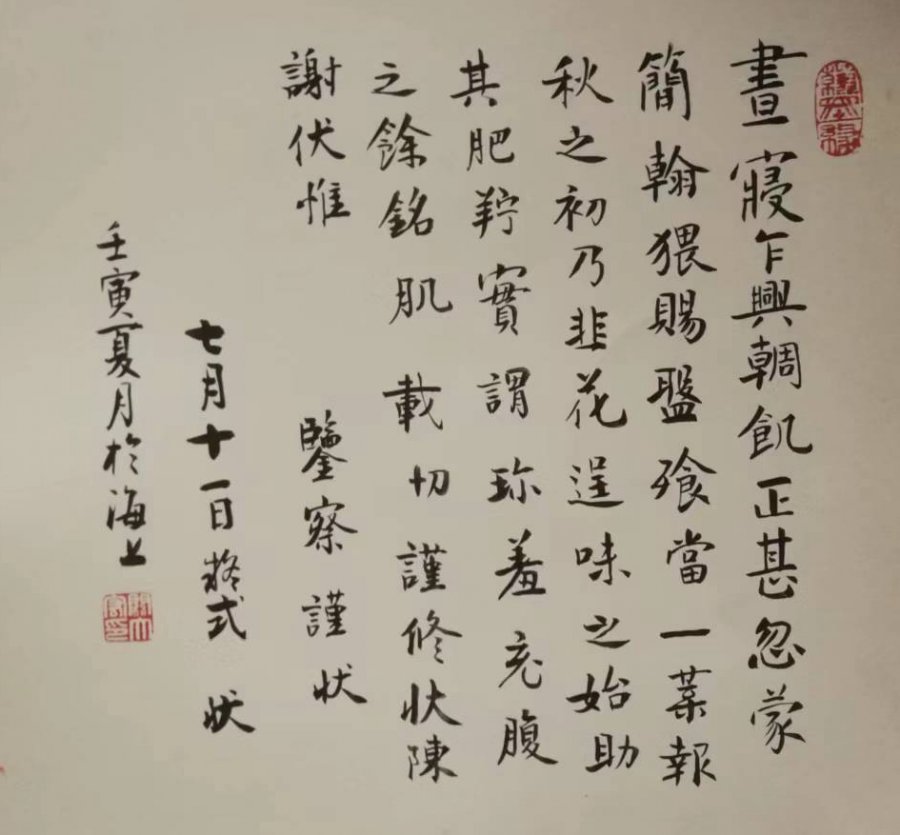 晝寢乍興輖飢正甚忽蒙
簡翰猥賜盤飧當一葉報
秋之初乃韭花逞味之始助
其肥羜實謂珍羞充腹
之餘銘肌載切謹修狀陳
謝伏惟鑒察謹狀
七月十一日凝式狀
壬寅夏月於海上